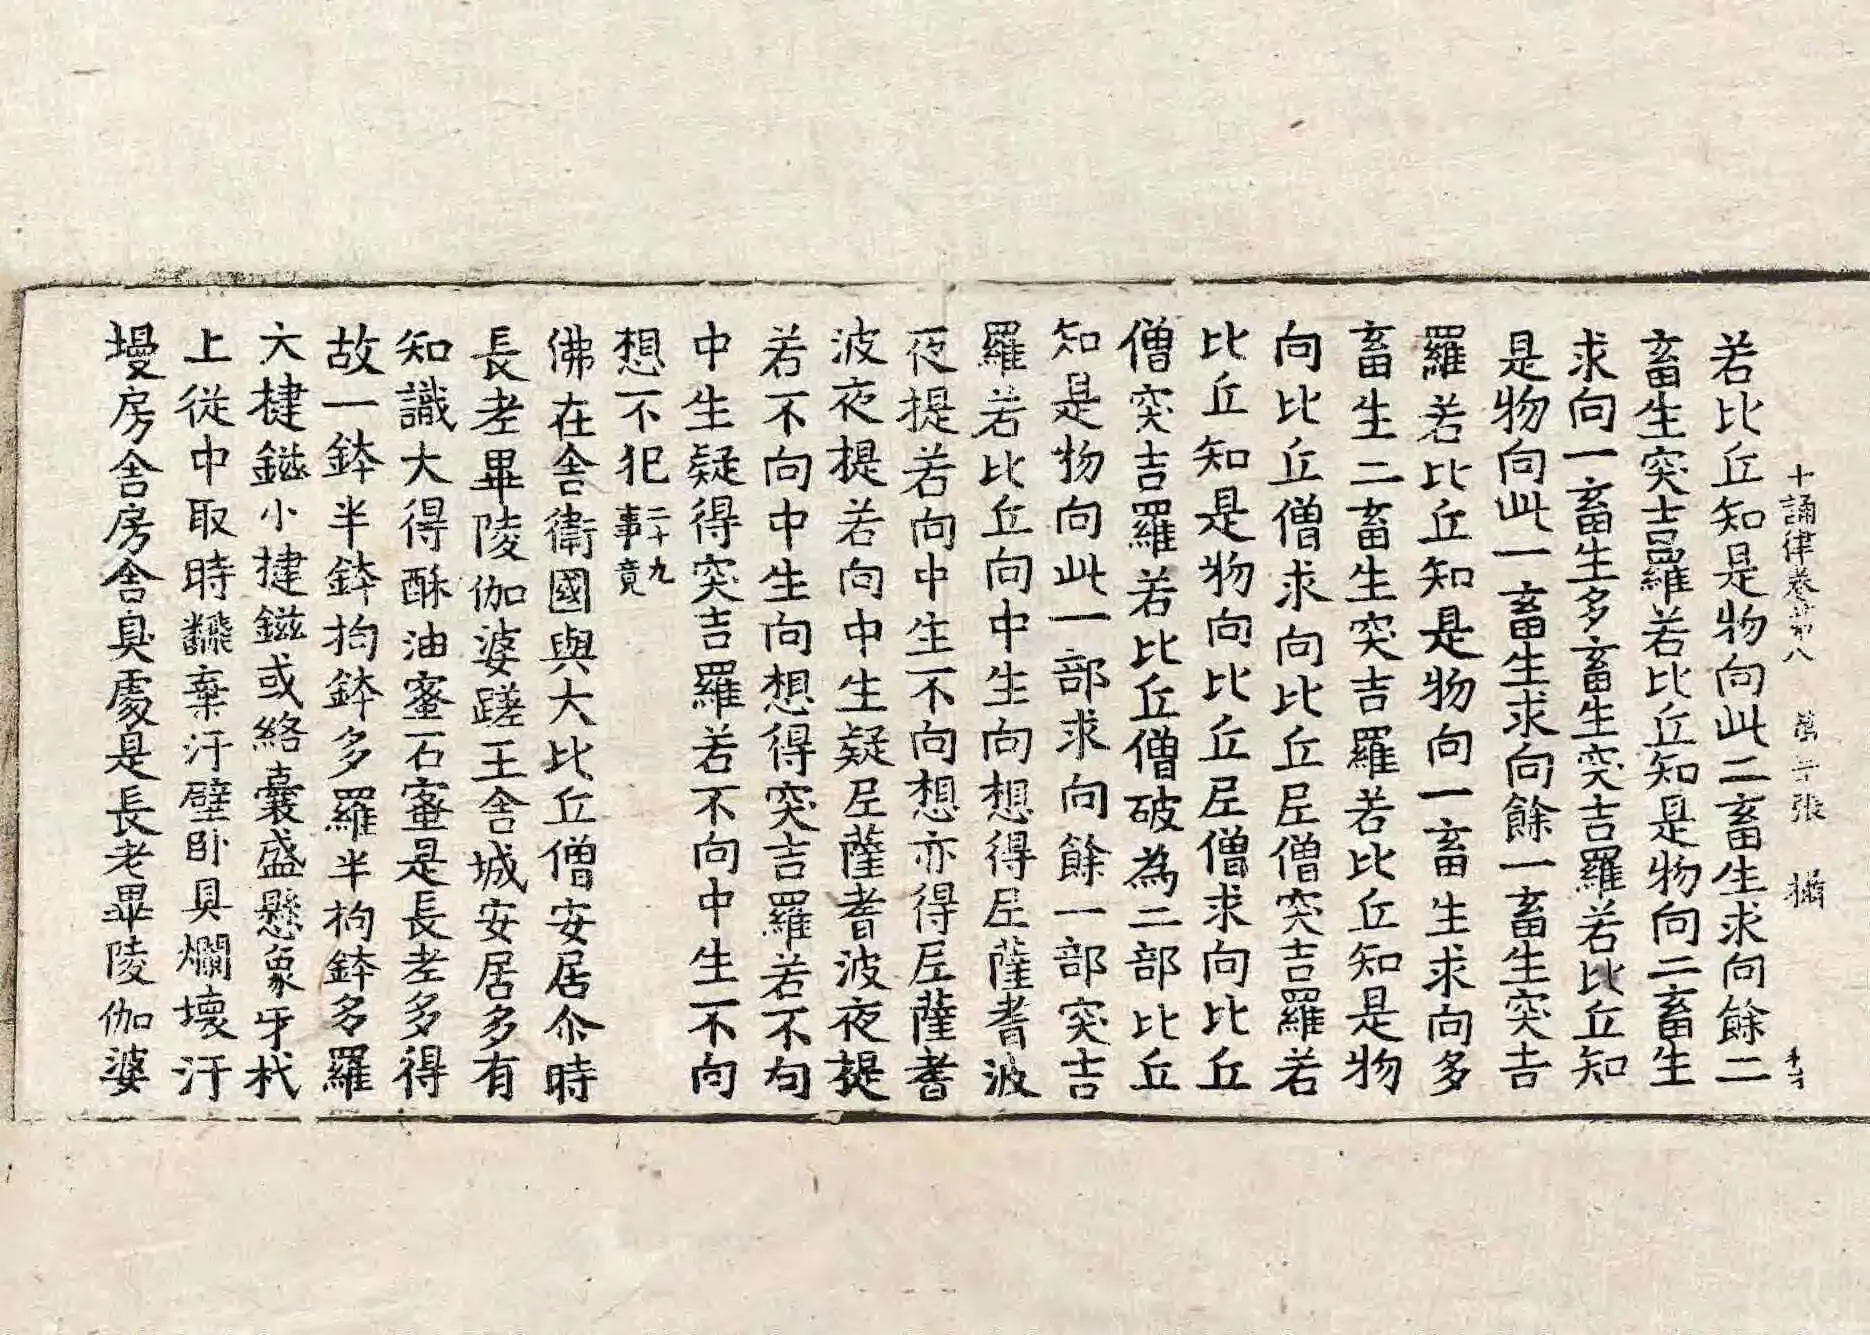 十誦律卷第八 張 㩉
若比丘知是物向此二畜生求向餘二
畜生突吉羅若比丘知是物向二畜生
求向一畜生多畜生突吉羅若比丘知
是物向此一畜生求向餘一畜生突吉
羅若比丘知是物向一畜生求向多
畜生二畜生突吉羅若比丘知是物
向比丘僧求向比丘尼僧突吉羅若
比丘知是物向比丘尼僧求向比丘
僧突吉羅若比丘僧破為二部比丘
知是物向此一部求向餘一部突吉
羅若比丘向中生向想得尼薩耆波
夜提若向中生不向想亦得尼薩耆
波夜提若向中生疑尼薩耆波夜提
若不向中生向想得突吉羅若不向
中生疑得突吉羅若不向中生不向
想不犯二十九事竟
佛在舍衛國與大比丘僧安居尒時
長老畢陵伽婆蹉王舍城安居多有
知識大得酥油蜜石蜜是長老多得
故一鉢半鉢拘鉢多羅半拘鉢多羅
大揵鎡小揵鎡或絡囊盛懸象牙杙
上從中取時飜棄汙壁卧具爛壞汙
墁房舍房舍臭處是長老畢陵伽婆